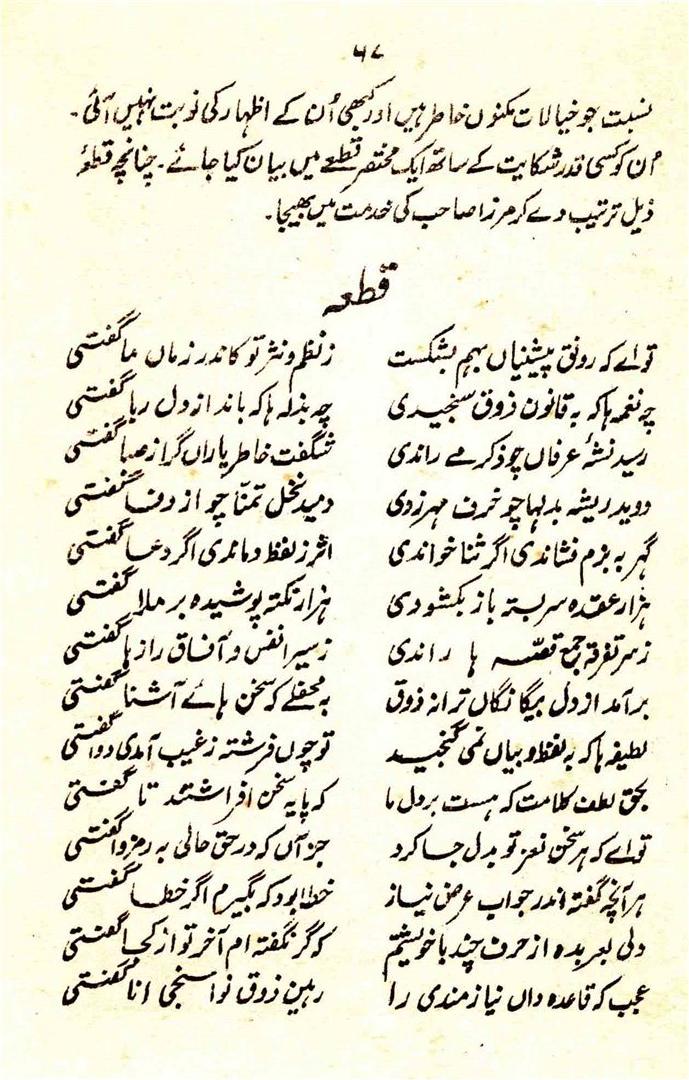 ۶۷
نسبت جو خیالات مکنوں خاطر ہیں اور کبھی اُن کے اظہار کی نوبت نہیں آئی۔
اُن کو کسی قدر شکایت کے ساتھ ایک مختصر قطعے میں بیان کیا جائے۔ چنانچہ قطعۂ
ذیل ترتیب دے کر مرزا صاحب کی خدمت میں بھیجا۔
قطعہ
تو اے کہ رونق پیشینیاں بہم بشکست زنظم و نثر تو کاندر زماں ما گفتی
چہ نغمہ ہا کہ بہ قانون ذوق سنجیدی چہ بذلہ ہا کہ بانداز دل ربا گفتی
رسید نشۂ عرفاں چو ذکر مے راندی شگفت خاطر یاراں گر از صبا گفتی
دوید ریشہ بدلہا چو حرف مہر زدی دمید نخل تمنّا چو از وفا گفتی
گہر بہ بزم فشاندی اگر ثنا خواندی اثر ز لفظ دماندی اگر دعا گفتی
ہزار عقدہ سربستہ باز بکشودی ہزار نکتہ پوشیدہ برملا گفتی
زسر تفرقہ جمع قصّہ ہا راندی زسیر انفس و آفاق رازہا گفتی
برآمد از دل بیگانگاں ترانہ ذوق بہ محفلے کہ سخن ہائے آشنا گفتی
لطیفہ ہا کہ بہ لفظ و بیاں نمی گنجید تو چوں فرشتہ زغیب آمدی و وا گفتی
بحق لطف کلامت کہ ہست بر دل ما کہ پایہ سخن افراشتند تا گفتی
تو اے کہ ہر سخن نغز تو بدل جا کرد جز آں کہ در حق حالی بہ رمز وا گفتی
ہر آنچہ گفتہ اندر جواب عرض نیاز خطا بود کہ بگیرم اگر خطا گفتی
ولی بعربدہ از حرف چند با خویشتم کہ گر نگفتہ ام آخر تو از کجا گفتی
عجب کہ قاعدہ داں نیازمندی را رہین ذوق نواسنجی انا گفتی